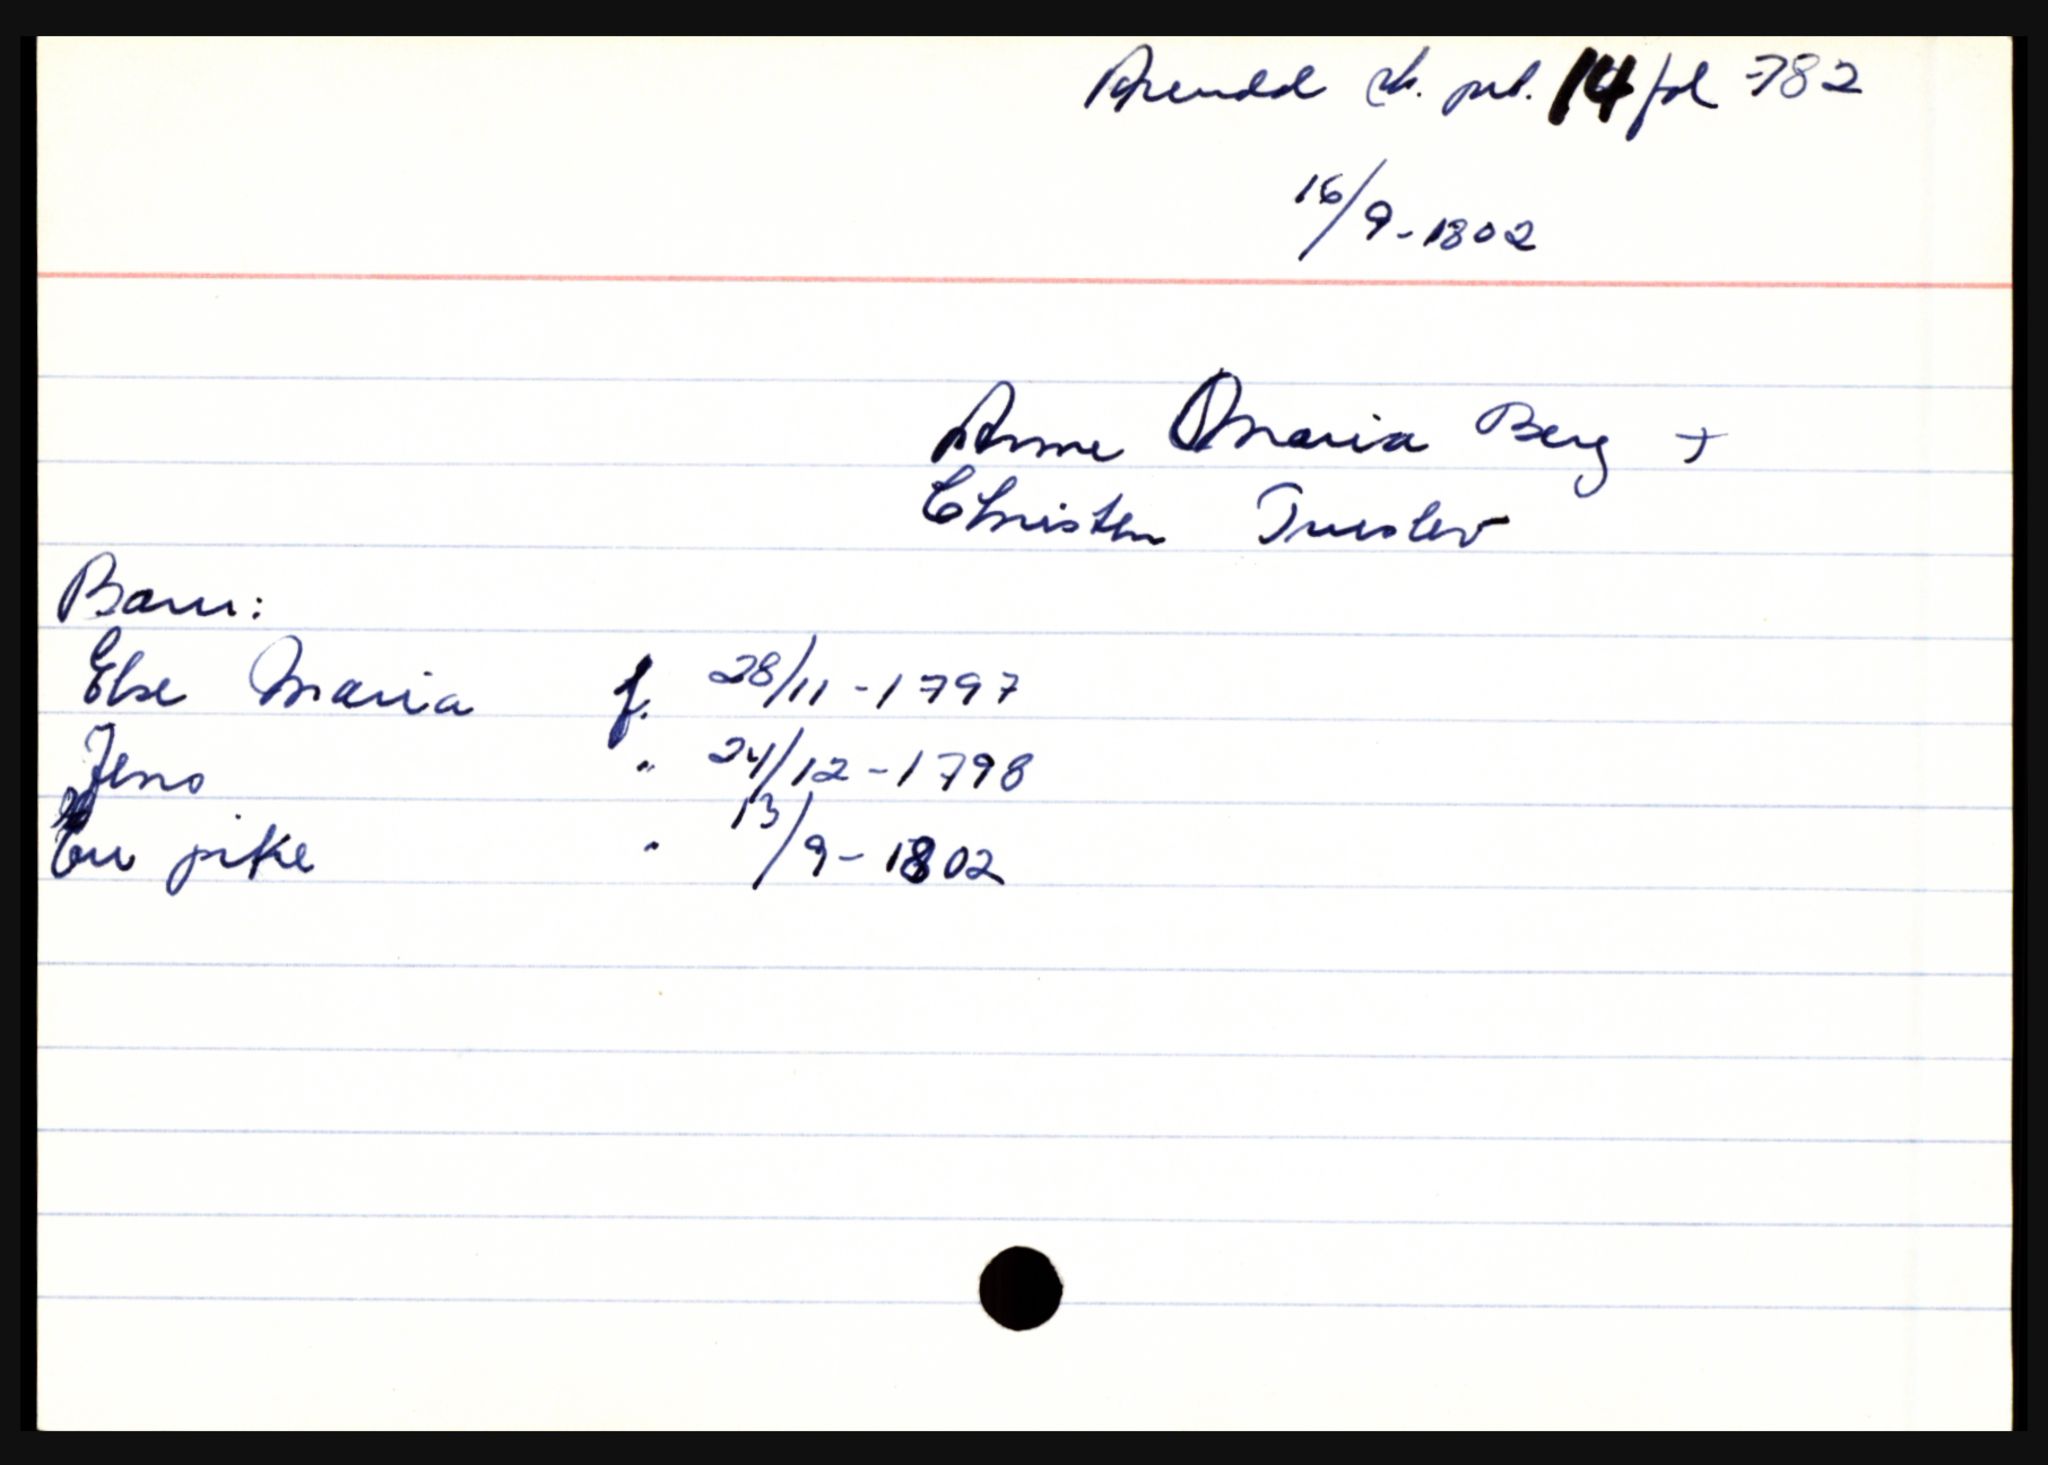 Arendal sk. prot. 14 fol 782
16/9-1802
Anne Maria Berg +
Christen
Barn:
Else Maria f. 28/11-1797
Jens " 24/12-1798
En pike " 13/9-1802